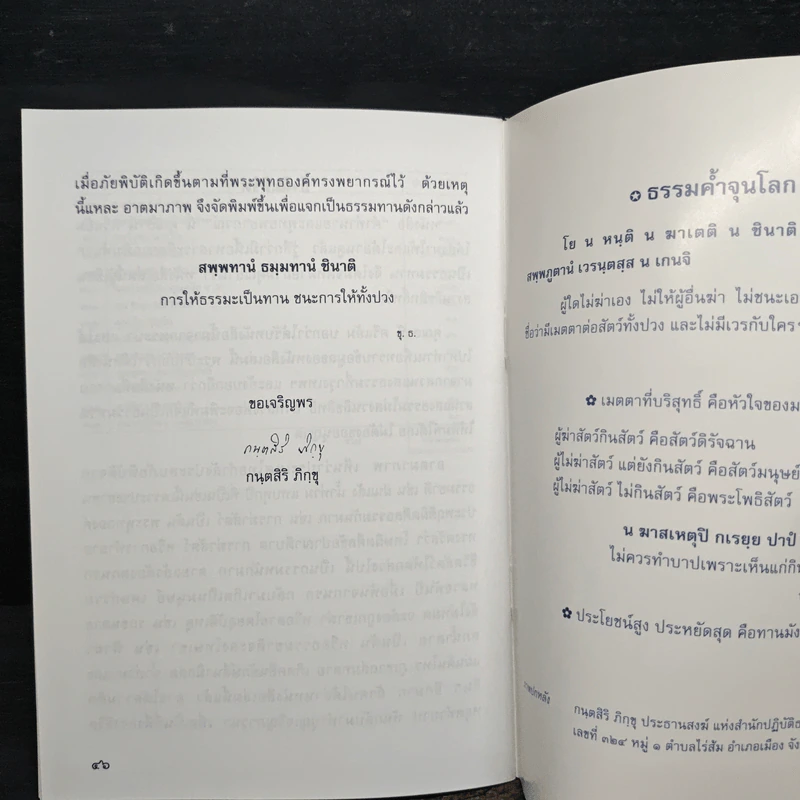 เมื่อภัยพิบัติเกิดขึ้นตามที่พระพุทธองค์ทรงพยากรณ์ไว้ ด้วยเหตุ
นี้แหละ อาตมาภาพ จึงจัดพิมพ์ขึ้นเพื่อแจกเป็นธรรมทานดังกล่าวแล้ว
สพฺพทานํ ธมฺมทานํ ชินาติ
การให้ธรรมะเป็นทาน ชนะการให้ทั้งปวง
ขุ. ธ.
ขอเจริญพร
กนฺตสิริ ภิกฺขุ
กนฺตสิริ ภิกฺขุ
๔๖
✪ ธรรมค้ำจุนโลก
โย น หนฺติ น ฆาเตติ น ชินาติ
สพฺพภูตานํ เวรนฺตสฺส น เกนจิ
ผู้ใดไม่ฆ่าเอง ไม่ให้ผู้อื่นฆ่า ไม่ชนะเอง
ชื่อว่ามีเมตตาต่อสัตว์ทั้งปวง และไม่มีเวรกับใคร
✿ เมตตาที่บริสุทธิ์ คือหัวใจของ
ผู้ฆ่าสัตว์กินสัตว์ คือสัตว์ดิรัจฉาน
ผู้ไม่ฆ่าสัตว์ แต่ยังกินสัตว์ คือสัตว์มนุษย์
ผู้ไม่ฆ่าสัตว์ ไม่กินสัตว์ คือพระโพธิสัตว์
น ฆาสเหตุปิ กเรยฺย ปาปํ
ไม่ควรทำบาปเพราะเห็นแก่กิน
✿ ประโยชน์สูง ประหยัดสุด คือทานมัง
กนฺตสิริ ภิกฺขุ ประธานสงฆ์ แห่งสำนักปฏิบัติธ
เลขที่ ๓๒๔ หมู่ ๑ ตำบลไร่ส้ม อำเภอเมือง จัง